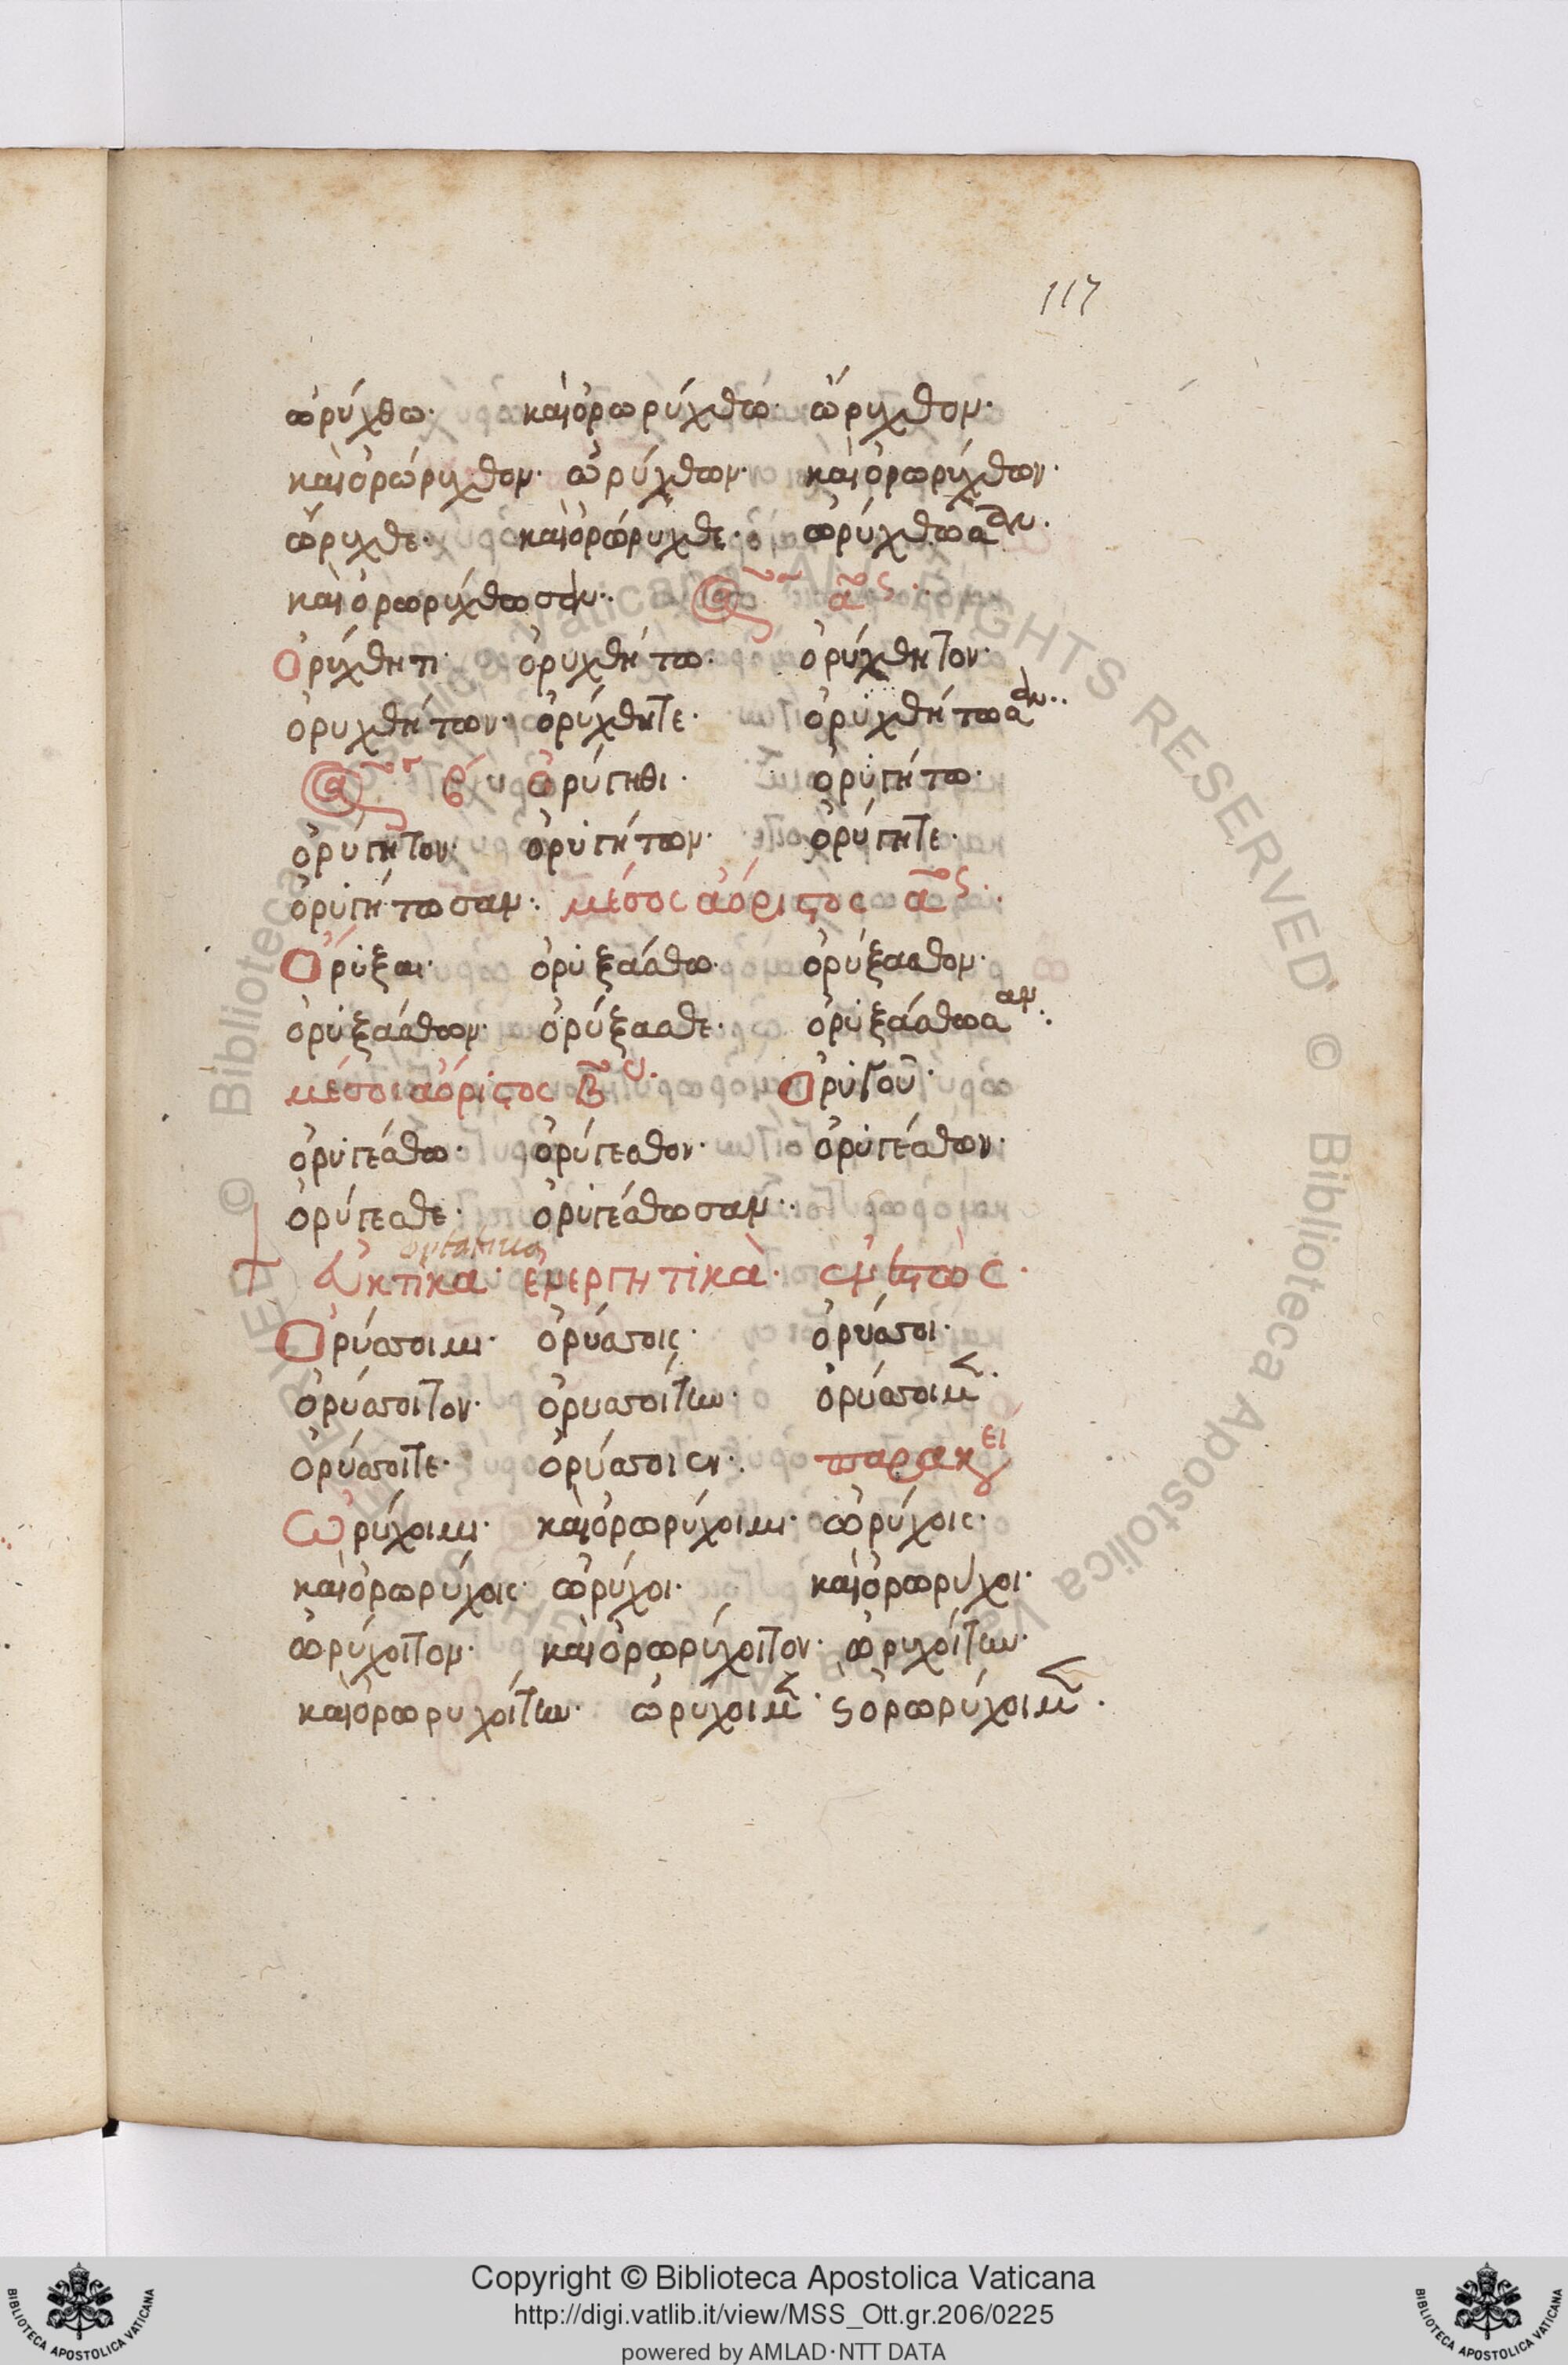 117
ὠρύχθω· καὶ ὀρωρύχθω· ὤρυχθον·
καὶ ὀρώρυχθον· ὠρύχθων· καὶ ὀρωρύχθων·
ὤρυχθε· καὶ ὀρώρυχθε· ὠρύχθωσαν·
καὶ ὀρωρύχθωσαν·
ὀρύχθητι· ὀρυχθήτω· ὀρύχθητον·
ὀρυχθήτων· ὀρύχθητε· ὀρυχθήτωσαν··
ὀρύγηθι· ὀρυγήτω·
ὀρύγητον· ὀρυγήτων· ὀρύγητε·
ὀρυγήτωσαν· μέσος ἀόριστος α ̅ς·
Ὄρυξαι· ὀρυξάσθω· ὀρύξασθον·
ὀρυξάσθων· ὀρύξασθε· ὀρυξάσθωσαν·
μέσος ἀόριστος β ̅υ· Ὀρυγοῦ·
ὀρυγέσθω· ὀρύγεσθον· ὀρυγέσθων·
ὀρύγεσθε· ὀρυγέσθωσαν··
optatiua
εὐκτικὰ· ἐνεργητικὰ· ἐνεστὼς·
Ὀρύσσοιμι· ὀρύσσοις· ὀρύσσοι·
ὀρύσσοιτον· ὀρυσσοίτην· ὀρύσσοιμεν·
ὀρύσσοιτε· ὀρύσσοιεν· παρακει
Ὠρύχοιμι· καὶ ὀρωρύχοιμι· ὠρύχοις·
καὶ ὀρωρύχοις· ὠρύχοι· καὶ ὀρωρύχοι·
ὠρύχοιτον· καὶ ὀρωρύχοιτον· ὠρυχοίτην·
καὶ ὀρωρυχοίτην· ὠρύχοιμεν· ϗ ὀρωρύχοιμεν·
© Biblioteca Apostolica Vaticana ALL RIGHTS RESERVED
Copyright © Biblioteca Apostolica Vaticana
http://digi.vatlib.it/view/MSS_Ott.gr.206/0225
powered by AMLAD·NTT DATA
BIBLIOTECA APOSTOLICA VATICANA
BIBLIOTECA APOSTOLICA VATICANA